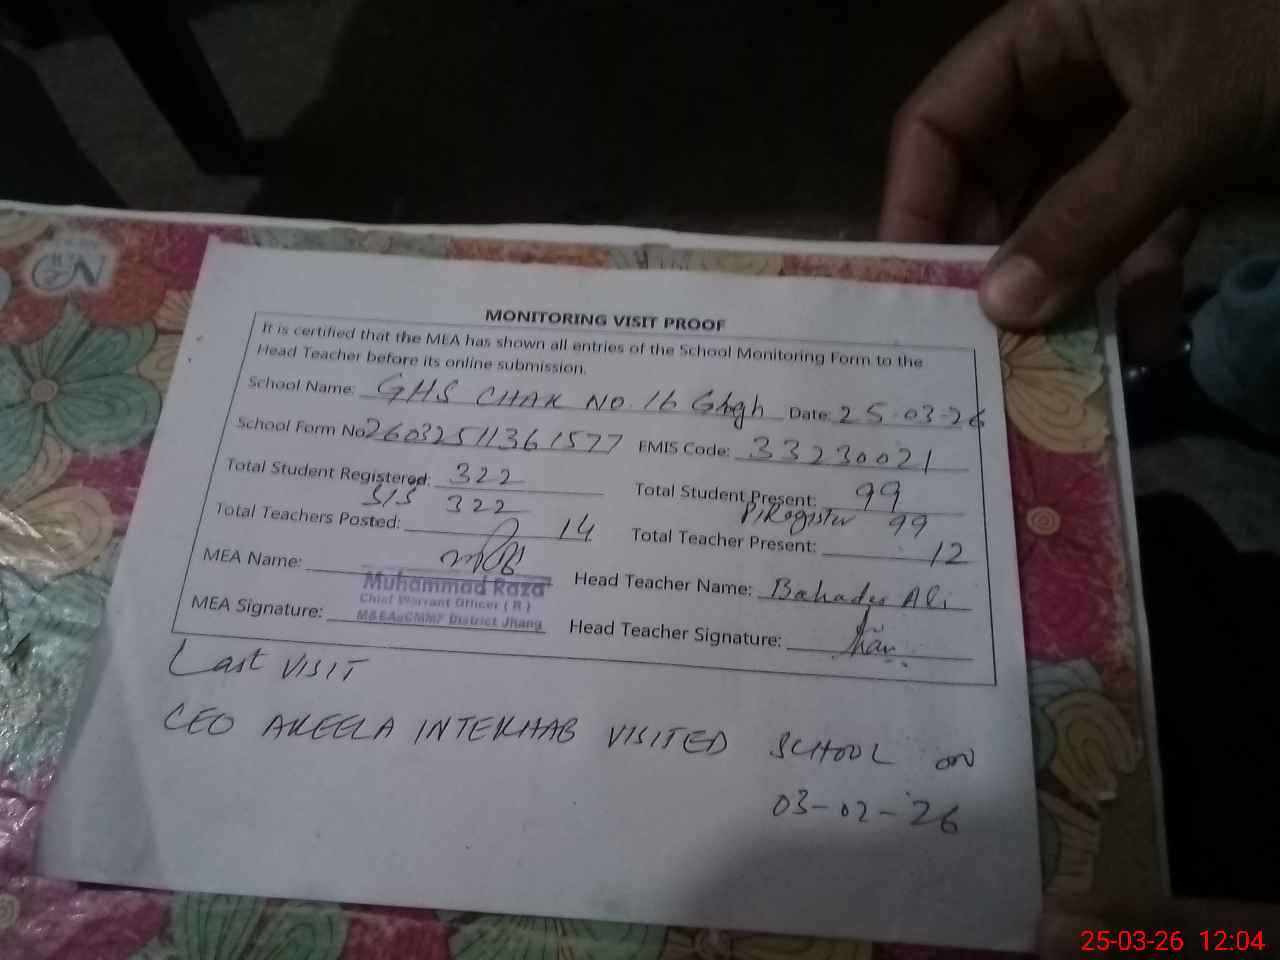 MONITORING VISIT PROOF
It is certified that the MEA has shown all entries of the School Monitoring Form to the
Head Teacher before its online submission.
School Name: GHS CHAK NO. 16 Ghagh Date: 25-03-26
School Form No 26032511361577 EMIS Code: 33230021
Total Student Registered: 322 Total Student Present: 99
SIS 322 P/Register 99
Total Teachers Posted: 14 Total Teacher Present: 12
MEA Name: Head Teacher Name: Bahadur Ali
Muhammad Raza
Chief Warrant Officer ( R )
MEA Signature: District Jhang Head Teacher Signature:
Last VISIT
CEO AKEELA INTEKHAB VISITED SCHOOL ON
03-02-26
25-03-26 12:04